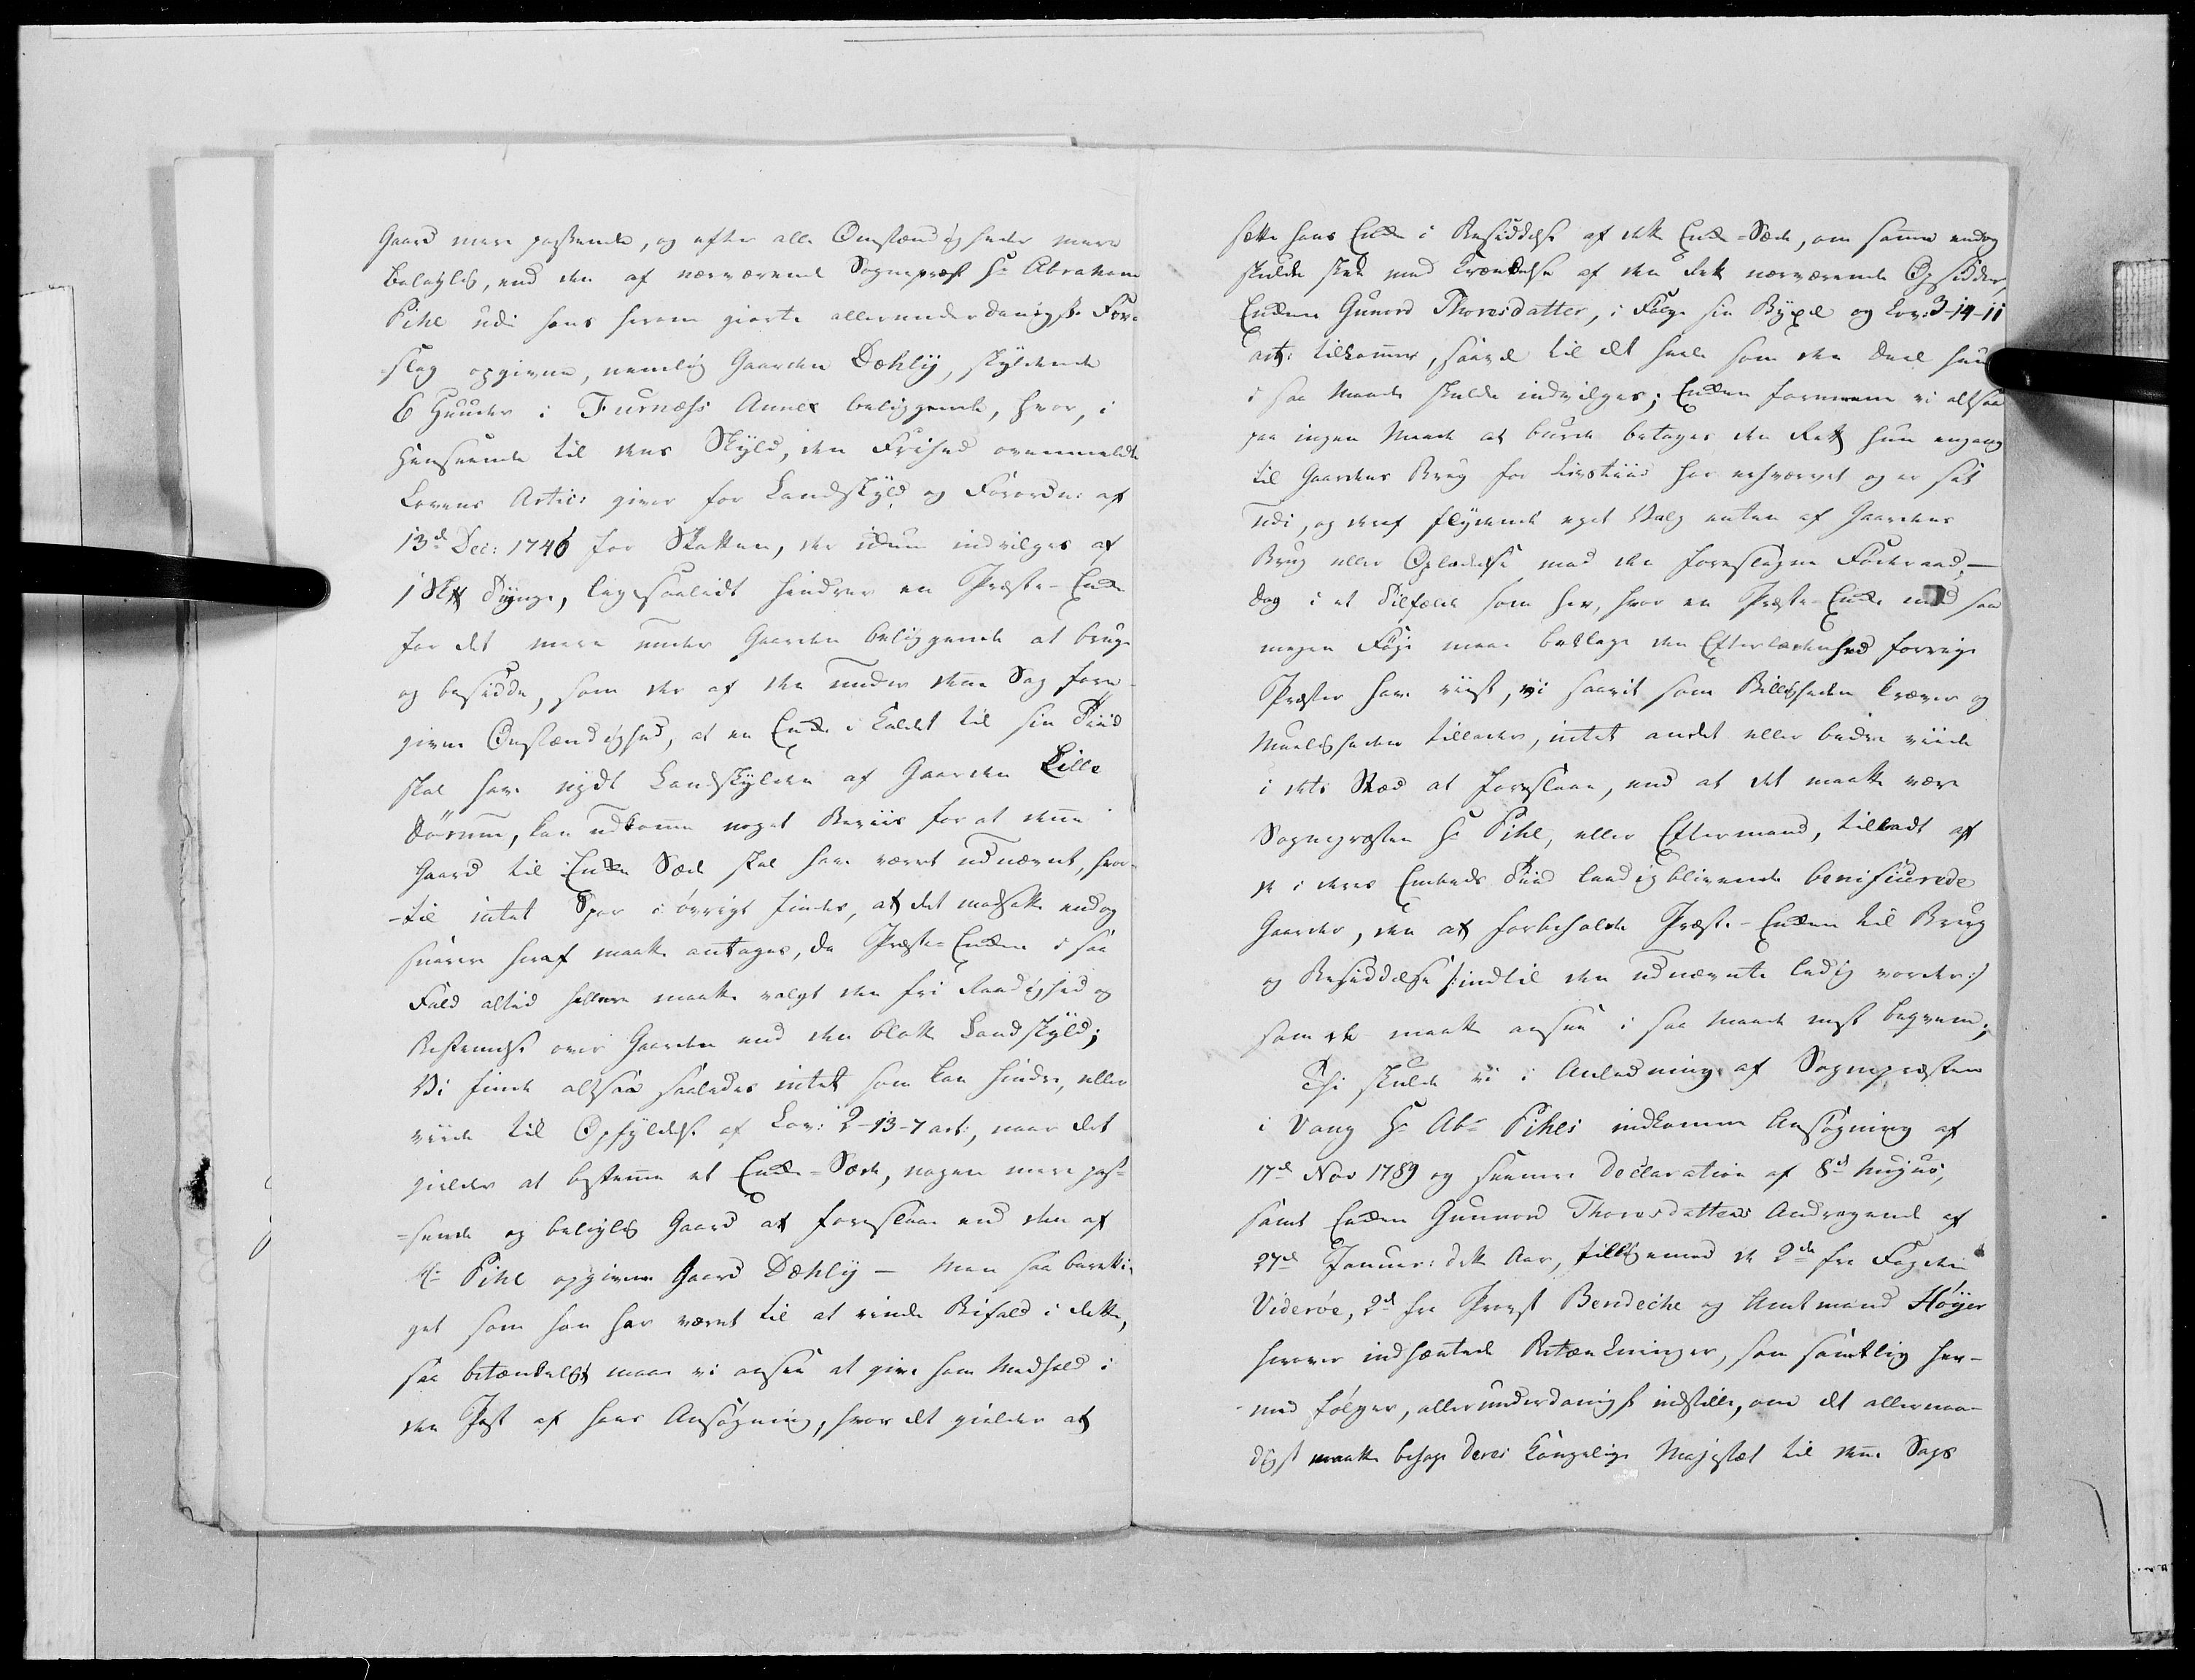 Gaard mere passende, og efter alle Omstændigheder mere
beleylig, end den af nærværende Sognepræst Hr Abraham
Pihl udi hans herom giorte allerunderdanigste Fore-
slag opgivne, nemlig Gaarden Dæhly, skyldende
6 Huuder i Furnæss Annex beliggende, hvor, i
Henseende til dens Skyld, den Friehed ovenmeldte
Lovens Artic: giver for Landskyld og Forordn: af
13d Dec: 1746 for Skatten, der idum indvilges af
1 Dynge, ligesaalidt hindrer en Præste-Enke
for det mere under Gaarden beliggende at bruge
og besidde, som der af den under denne Sag fore-
givne Omstændighed, at en Enke i Kaldet til sin Tiid
skal have nydt Landskylden af Gaarden Lille
Dørum, kan udkomme noget Beviis for at denne
Gaard til Enke Sæde skal have været udnævnt, hvor-
-til intet Spor i øvrigt findes, at det modsatte endog
snarere heraf maatte antages, da Præste-Enken i saa
Fald altid hellere maatte valgt den frie Raadighed og
Bestemmelse over Gaarden end den blotte Landskyld;
Vi finde altsaa saaledes intet som kan hindre, eller
viide til Opfyldelse af Lov: 2-13-7 art:, naar det
gielder at bestemme et Enke-Sæde, nogen mere pas-
-sende og beleylig Gaard at foreslaae end den af
Hr Pihl opgivne Gaard Dæhly — Men saa beretti-
get som han har været til at vinde Bifald i dette,
saa betænkeligt maae vi ansee at give ham Medhold i
den Post af hans Ansøgning, hvor det gielder at
sætte hans Enke i Besiddelse af dette Enke-Sæde, om samme endog
skulde skee med Krænkelse af den Ret nærværende Opsidder
Enken Gunord Thoresdatter, i Følge sin Bøxel og Lov: 3-14-11
art: tilkommer, saavel til det heele som den Deel hun
i saa Maade skulde indvilges; Enken formeene vi altsaa
paa ingen Maade at burde betages den Ret hun engang
til Gaardens Brug for Livstiid har erhvervet og er sat
udi, og deraf flydende eget Valg enten af Gaardens
Brug eller Opladelse mod den foreslagne Føderaad, —
dog i et Tilfælde som her, hvor en Præste-Enke med saa
megen Føye maae beklage den Efterladenhed forrige
Præster have viist, vi saavidt som Billigheden kræver og
Mueligheden tillader, intet andet eller bedre viide
i dets Stæd at foreslaae, end at det maatte være
Sognepræsten Hr Pihl, eller Eftermand, tilladt af
de i deres Embeds Tiid leedigblivende benificerede
Gaarder, een at forbeholde Præste-Enken til Brug
og Besiddelse /:indtil den udnævnte ledig vorder:/
som de maatte ansee i saa Maade mest beqvem;
Thi skulde vi i Anledning af Sognepræsten
i Vang Hr Abr Pihls indkomne Ansøgning af
17d Nov 1789 og seenere Declaration af 8d hujus,
samt Enken Gunnord Thoresdatters Andragende af
27d Januar: dette Aar, tilligemed de 2de fra Fogden
Viderøe, 2d fra Provst Bendeche og Amtmand Høyer
herover indhæntede Betænkninger, som samtlig her-
-med følger, allerunderdanigst indstille, om det allernaa-
digst maatte behage Deres Kongelige Majestæt til denne Sags